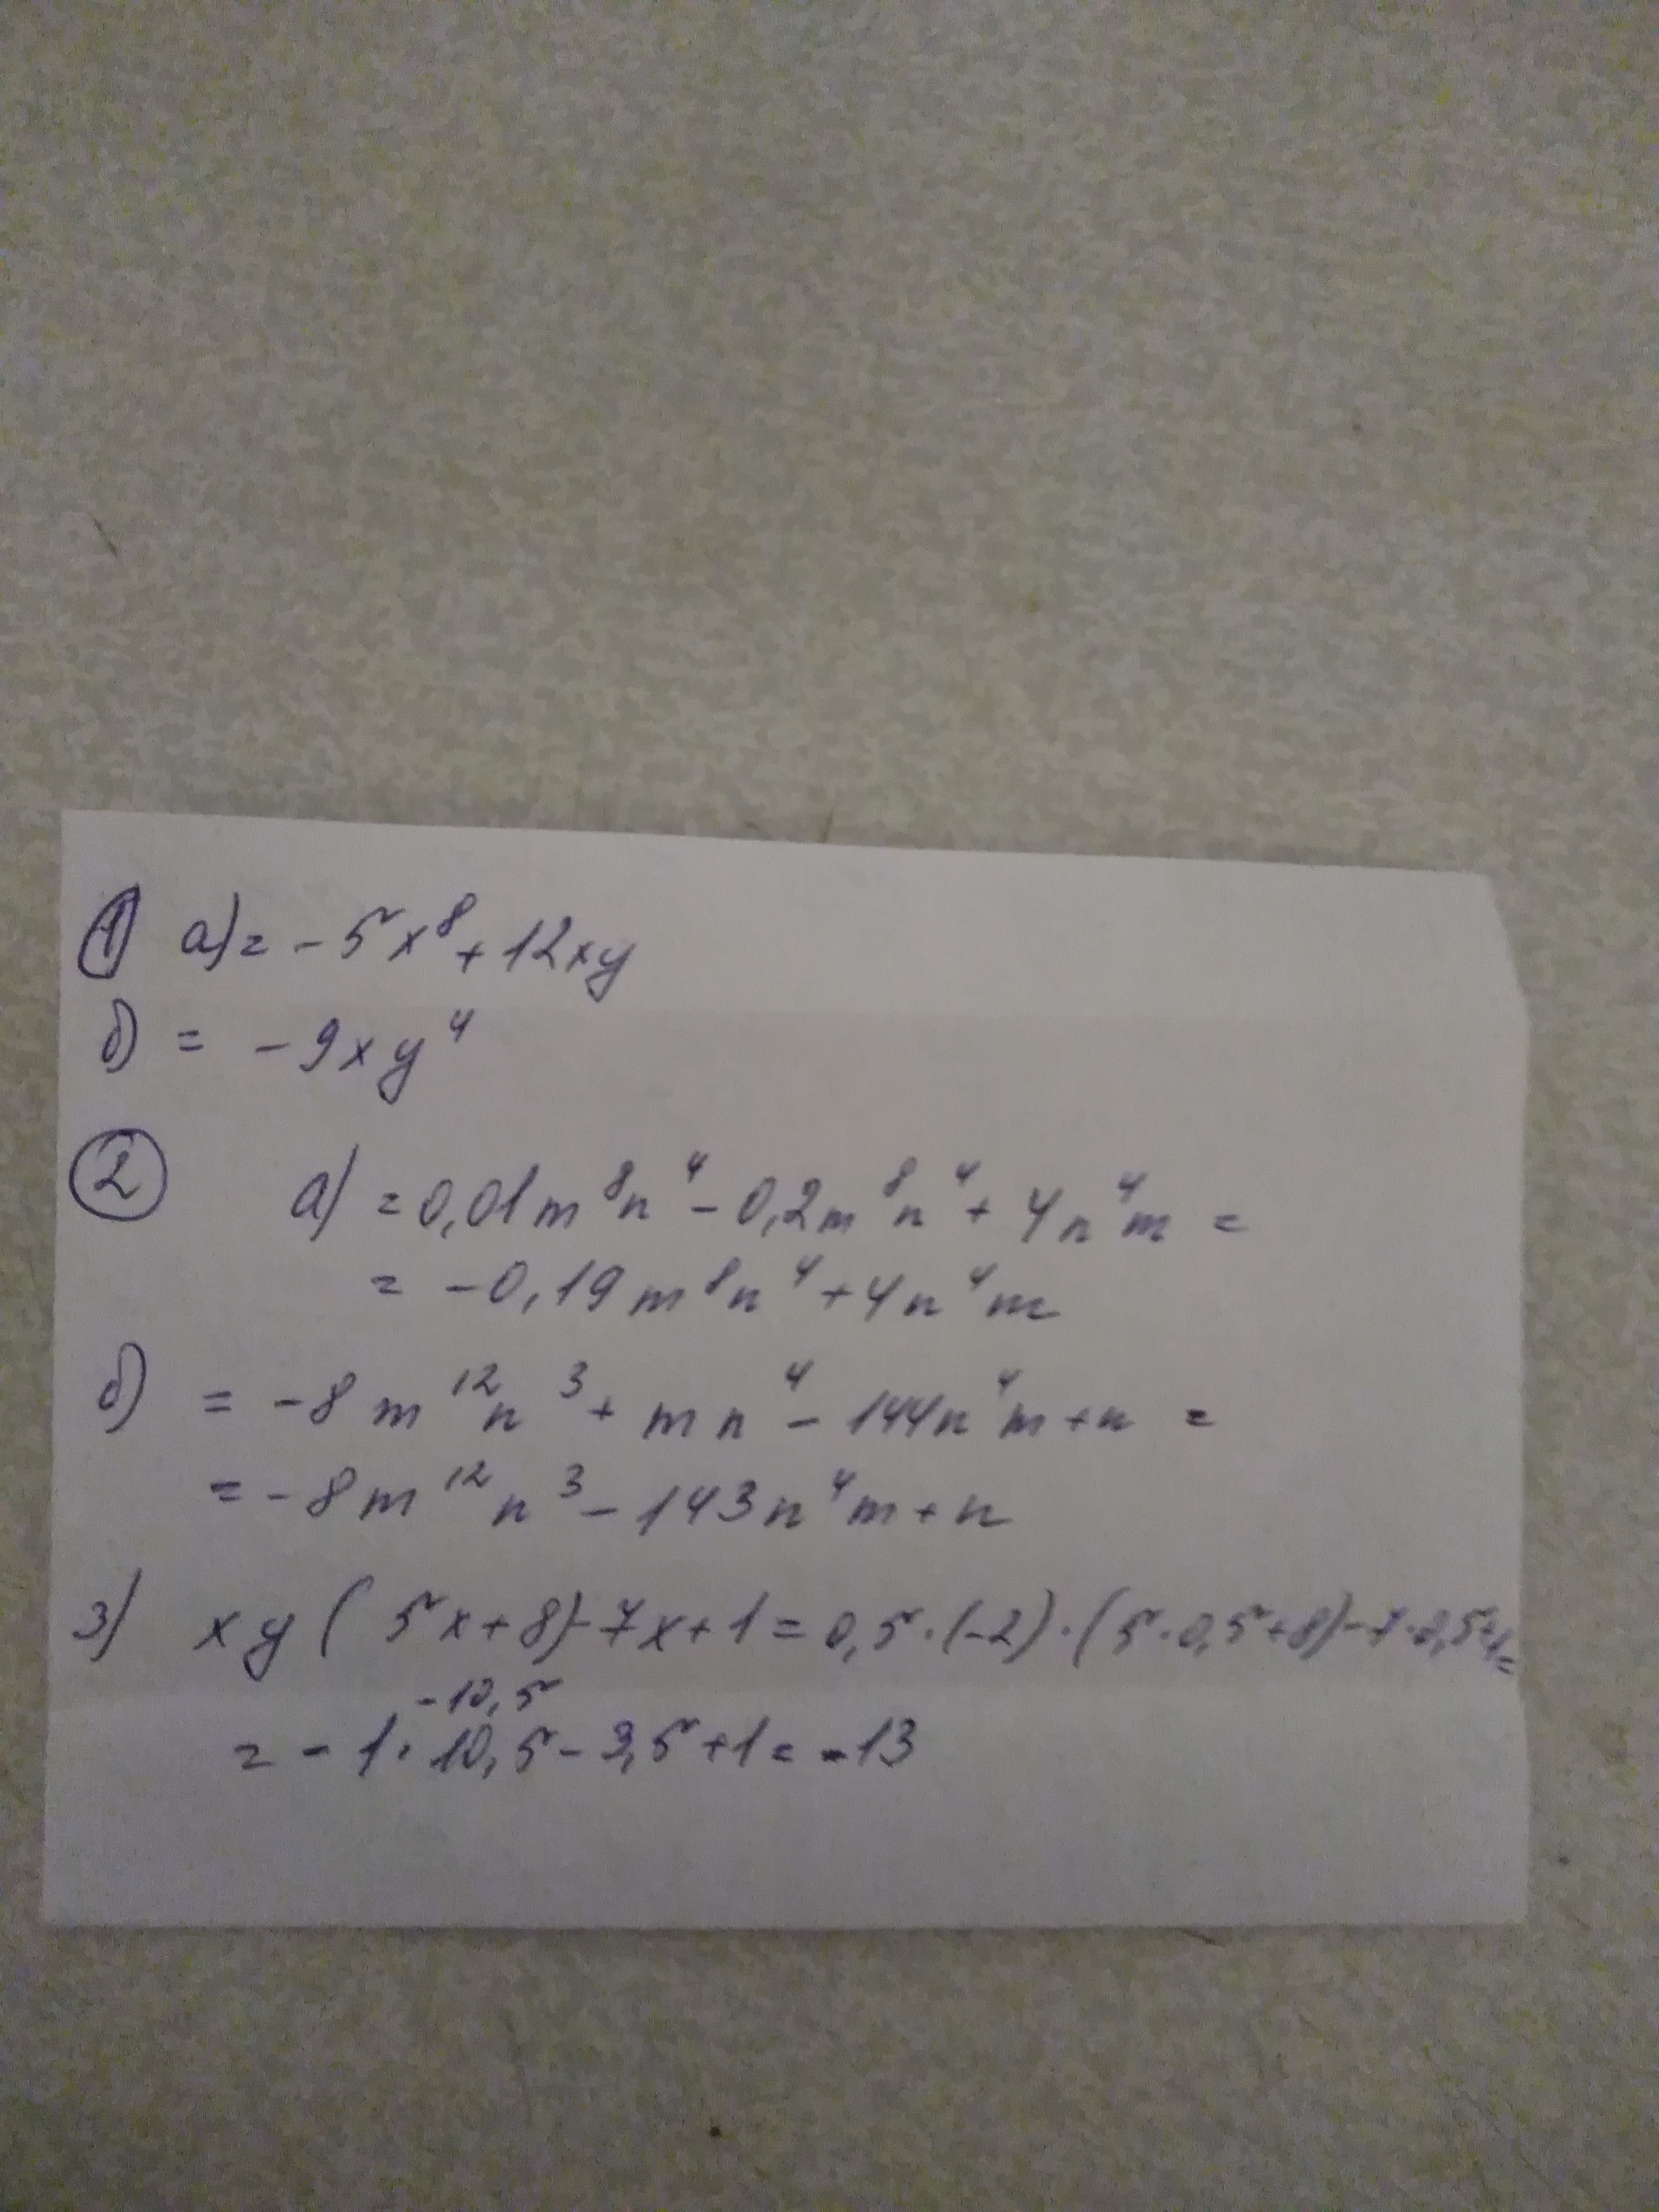 ① а) = -5x⁸ + 12xy
б) = -9xy⁴
② а) = 0,01m⁸n⁴ - 0,2m⁸n⁴ + 4n⁴m =
= -0,19m⁸n⁴ + 4n⁴m
б) = -8m¹²n³ + mn⁴ - 144n⁴m + n =
= -8m¹²n³ - 143n⁴m + n
3) xy(5x+8)-7x+1 = 0,5·(-2)·(5·0,5+8)-7·0,5+1=
-10,5
= -1·10,5-3,5+1 = -13